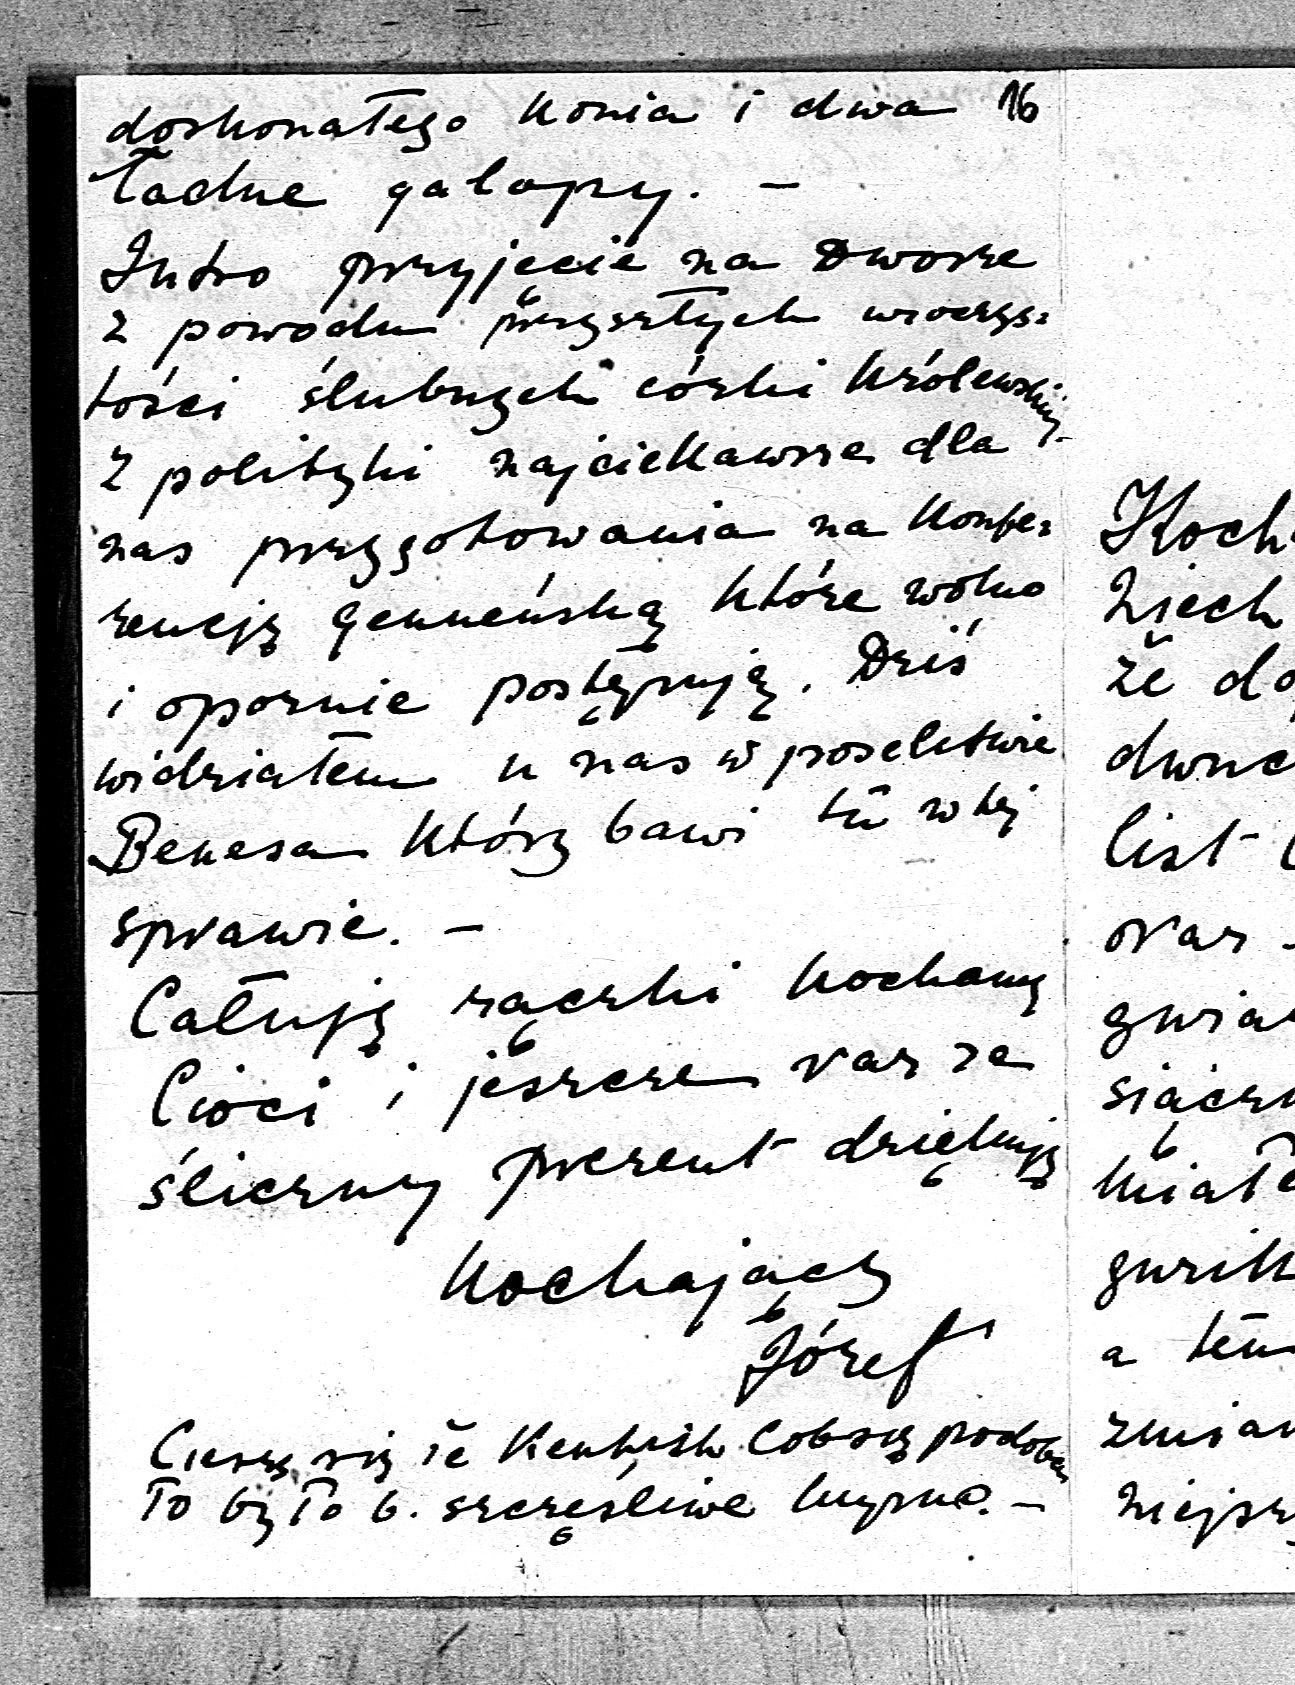 doskonałego konia i dwa 16
ładne galopy. —
Jutro przyjęcie na Dworze
z powodu przyszłych uroczys=
tości ślubnych córki królewskiej
Z polityki najciekawsze dla
nas przygotowania na konfe=
rencję genueńską które wolno
i opornie postępują. Dziś
widziałem u nas w poselstwie
Benesa który bawi tū w tej
sprawie. —
Całuję rączki kochanej
Cioci i jeszcze raz za
śliczny prezent dziękuję
kochający
Józef
Cieszę się że Kentish Cob się podoba
To było b. szczęśliwe kupno. —
Koch
Niech
że do
dwuc
list
oraz
gwiaz
siącz
miał
gwiłk
a tem
zmian
niejsz